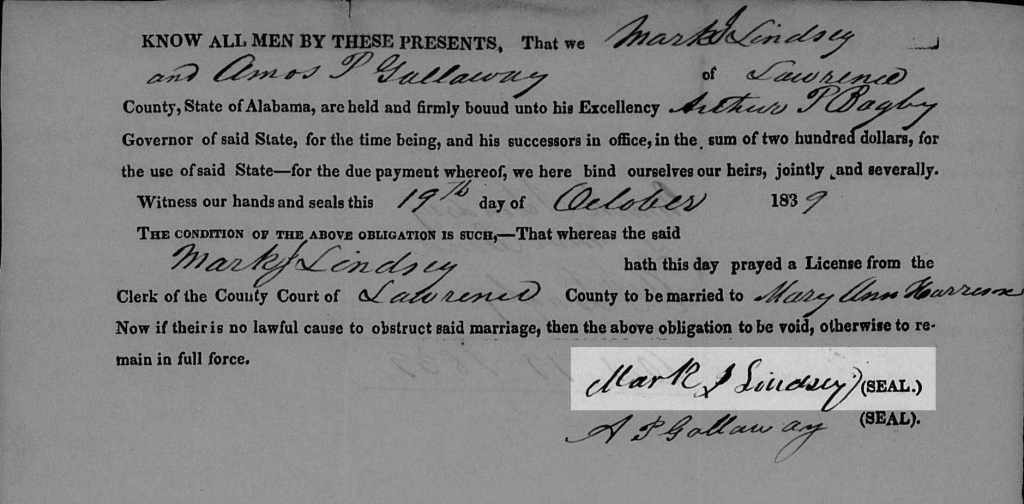 KNOW ALL MEN BY THESE PRESENTS, That we Mark J Lindsey
and Amos P Gallaway of Lawrence
County, State of Alabama, are held and firmly bouud unto his Excellency Arthur P Bagby
Governor of said State, for the time being, and his successors in office, in the sum of two hundred dollars, for
the use of said State—for the due payment whereof, we here bind ourselves our heirs, jointly and severally.
Witness our hands and seals this 19th day of October 1839
THE CONDITION OF THE ABOVE OBLIGATION IS SUCH,—That whereas the said
Mark J Lindsey hath this day prayed a License from the
Clerk of the County Court of Lawrence County to be married to Mary Ann Harrison
Now if their is no lawful cause to obstruct said marriage, then the above obligation to be void, otherwise to re-
main in full force.
Mark J Lindsey (SEAL.)
A P Gallaway (SEAL).